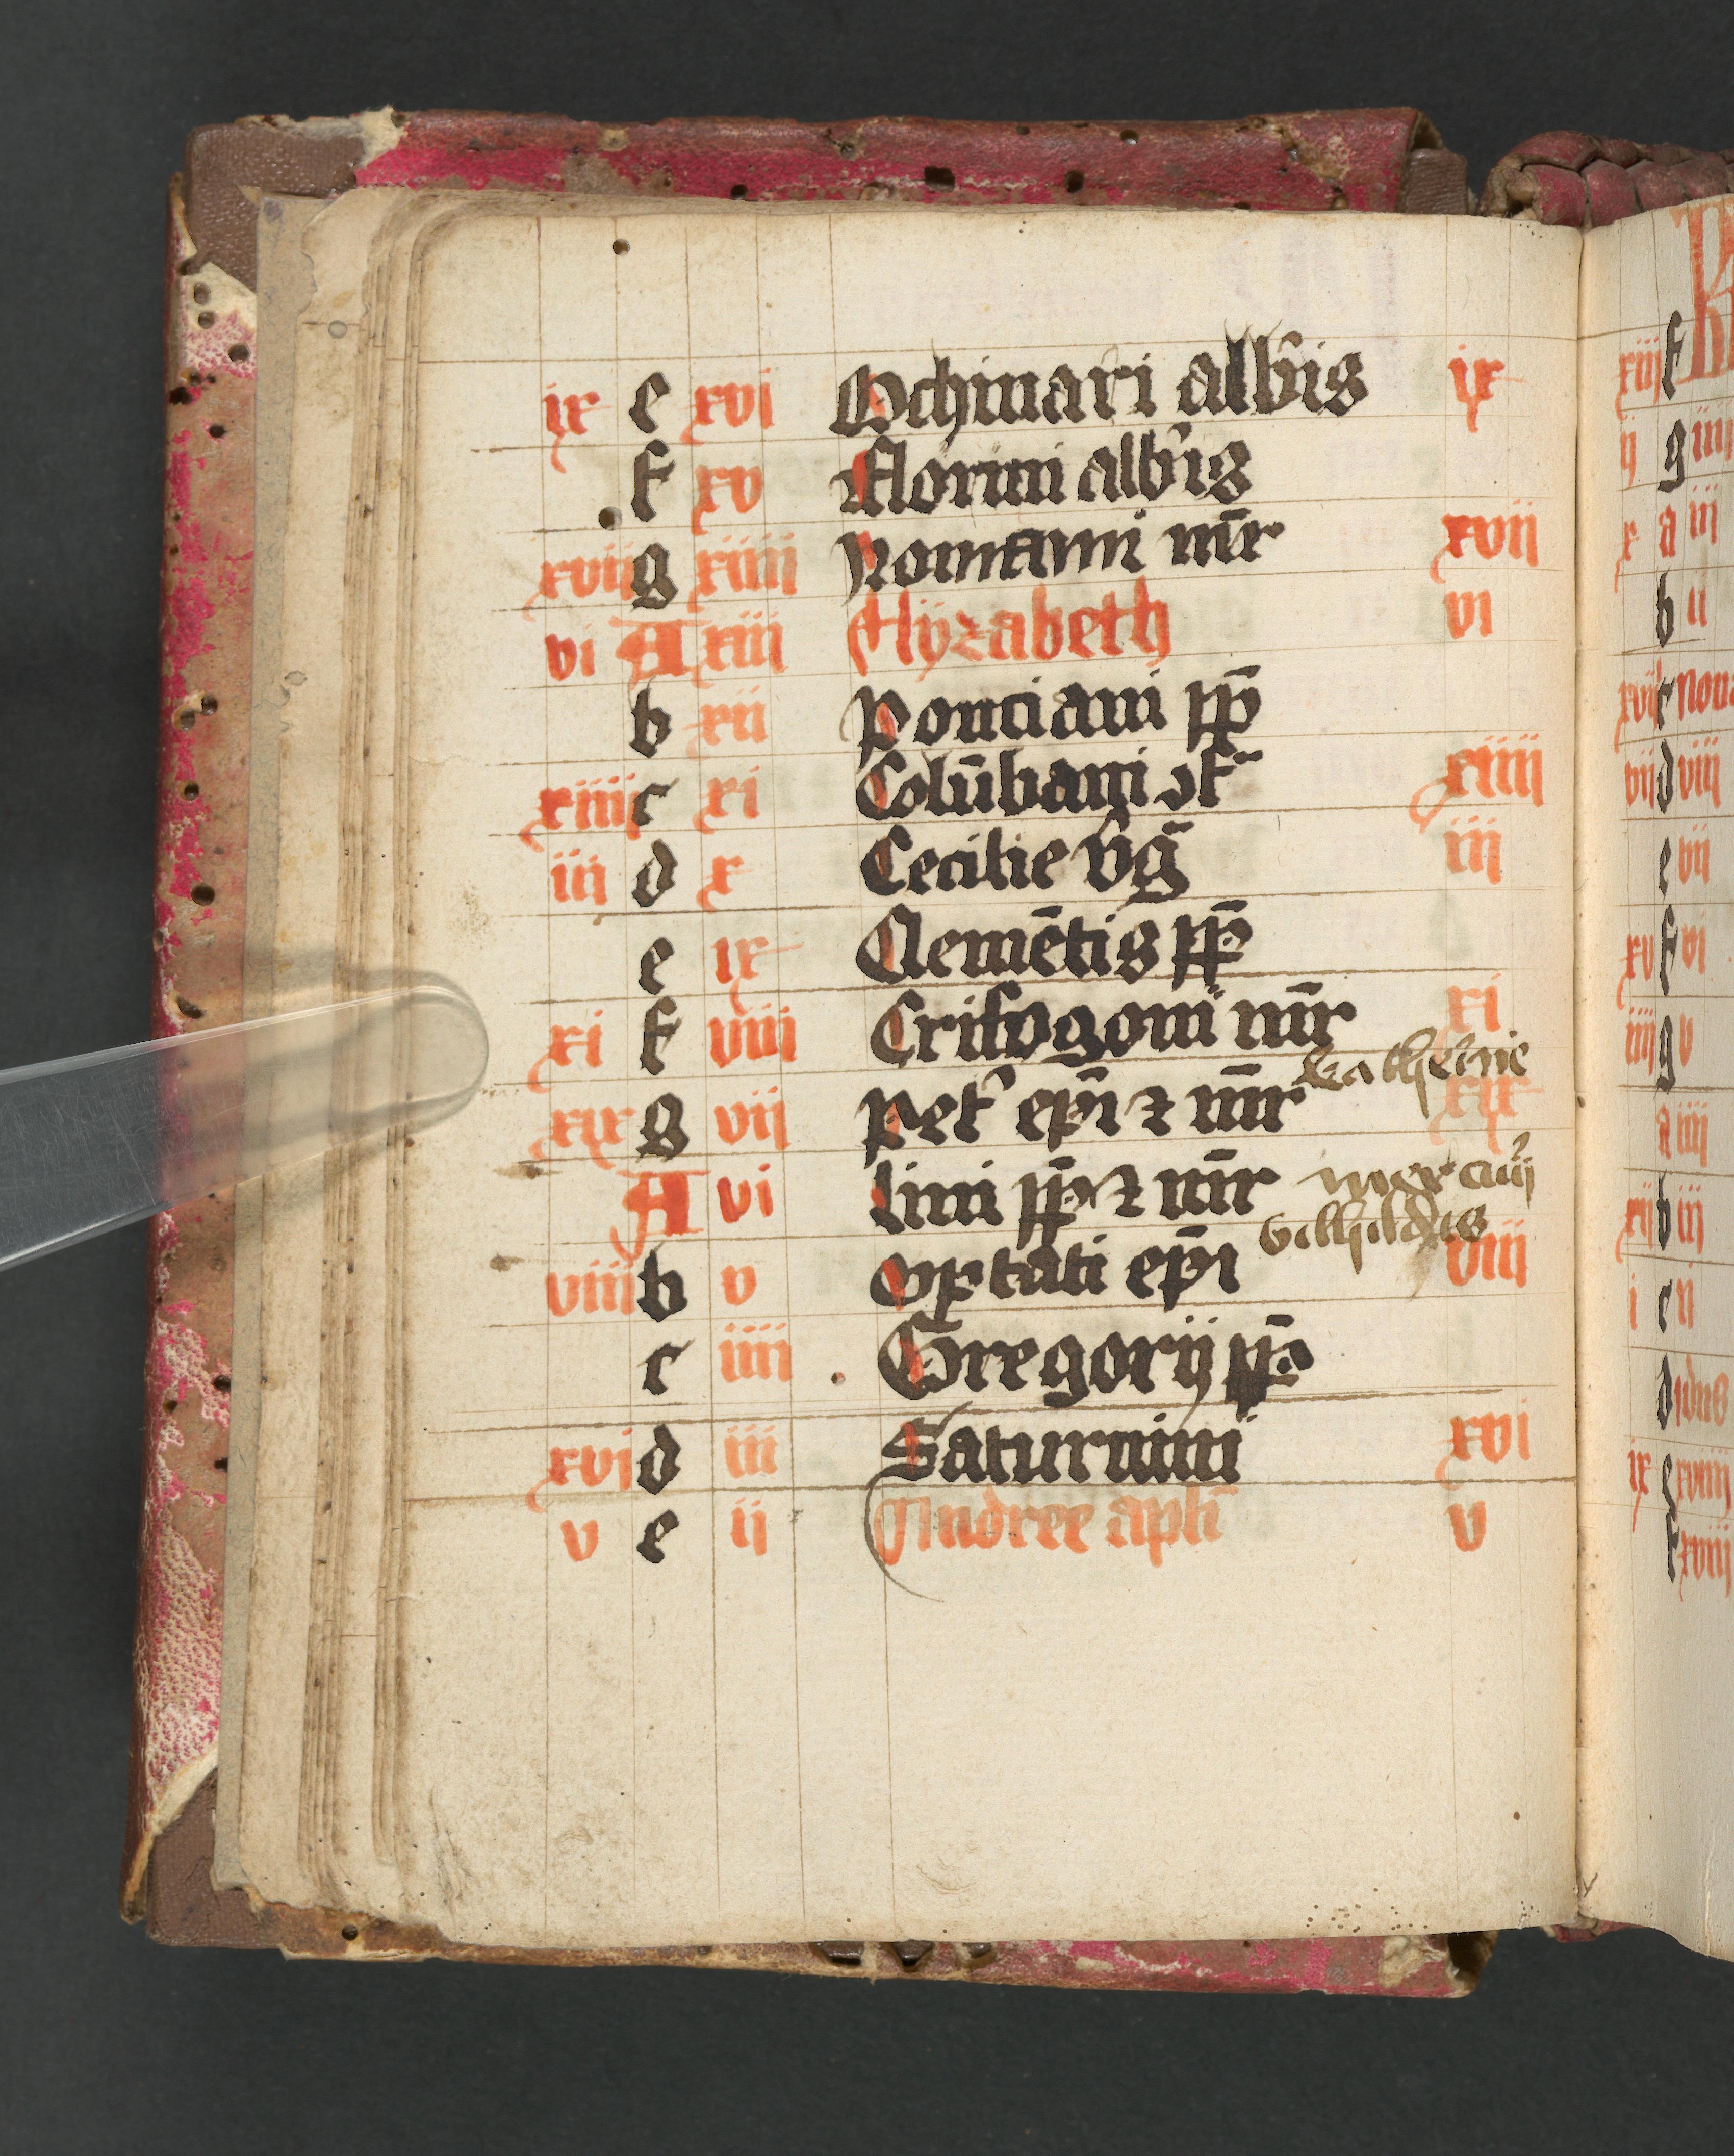 ix e xvi Othmari abb̄is ix
f xv Florini abb̄is
xvii g xiiii Romani m̄r xvii
vi A xiii Elyzabeth vi
b xii Ponciani pp̄
xiiii c xi Colūbani ꝯf xiiii
iii d x Cecilie v̄g iii
e ix Clemētis pp̄
xi f viii Crisogoni m̄r xi
katherine
xix g vii Pet᷒ ep̄i ⁊ m̄r xix
A vi Lini pp̄ ⁊ m̄r
viii b v Optati ep̄i viii
c iiii Gregorij pp̄
xvi d iii Saturnini xvi
v e ii Andree apl̄i v
xiij f
ij g iiij
x a iij
b ii
xviij c Nonas
vij d viij
e vij
xv f vi
iiij g v
a iiij
xij b iij
i c ii
d idus
ix e xviiij
f xviij